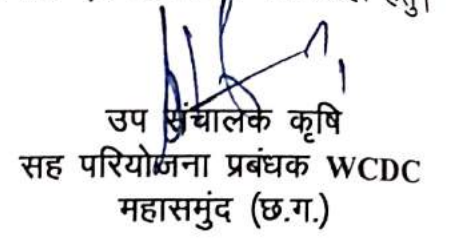 हेतु।
उप संचालक कृषि
सह परियोजना प्रबंधक WCDC
महासमुंद (छ.ग.)